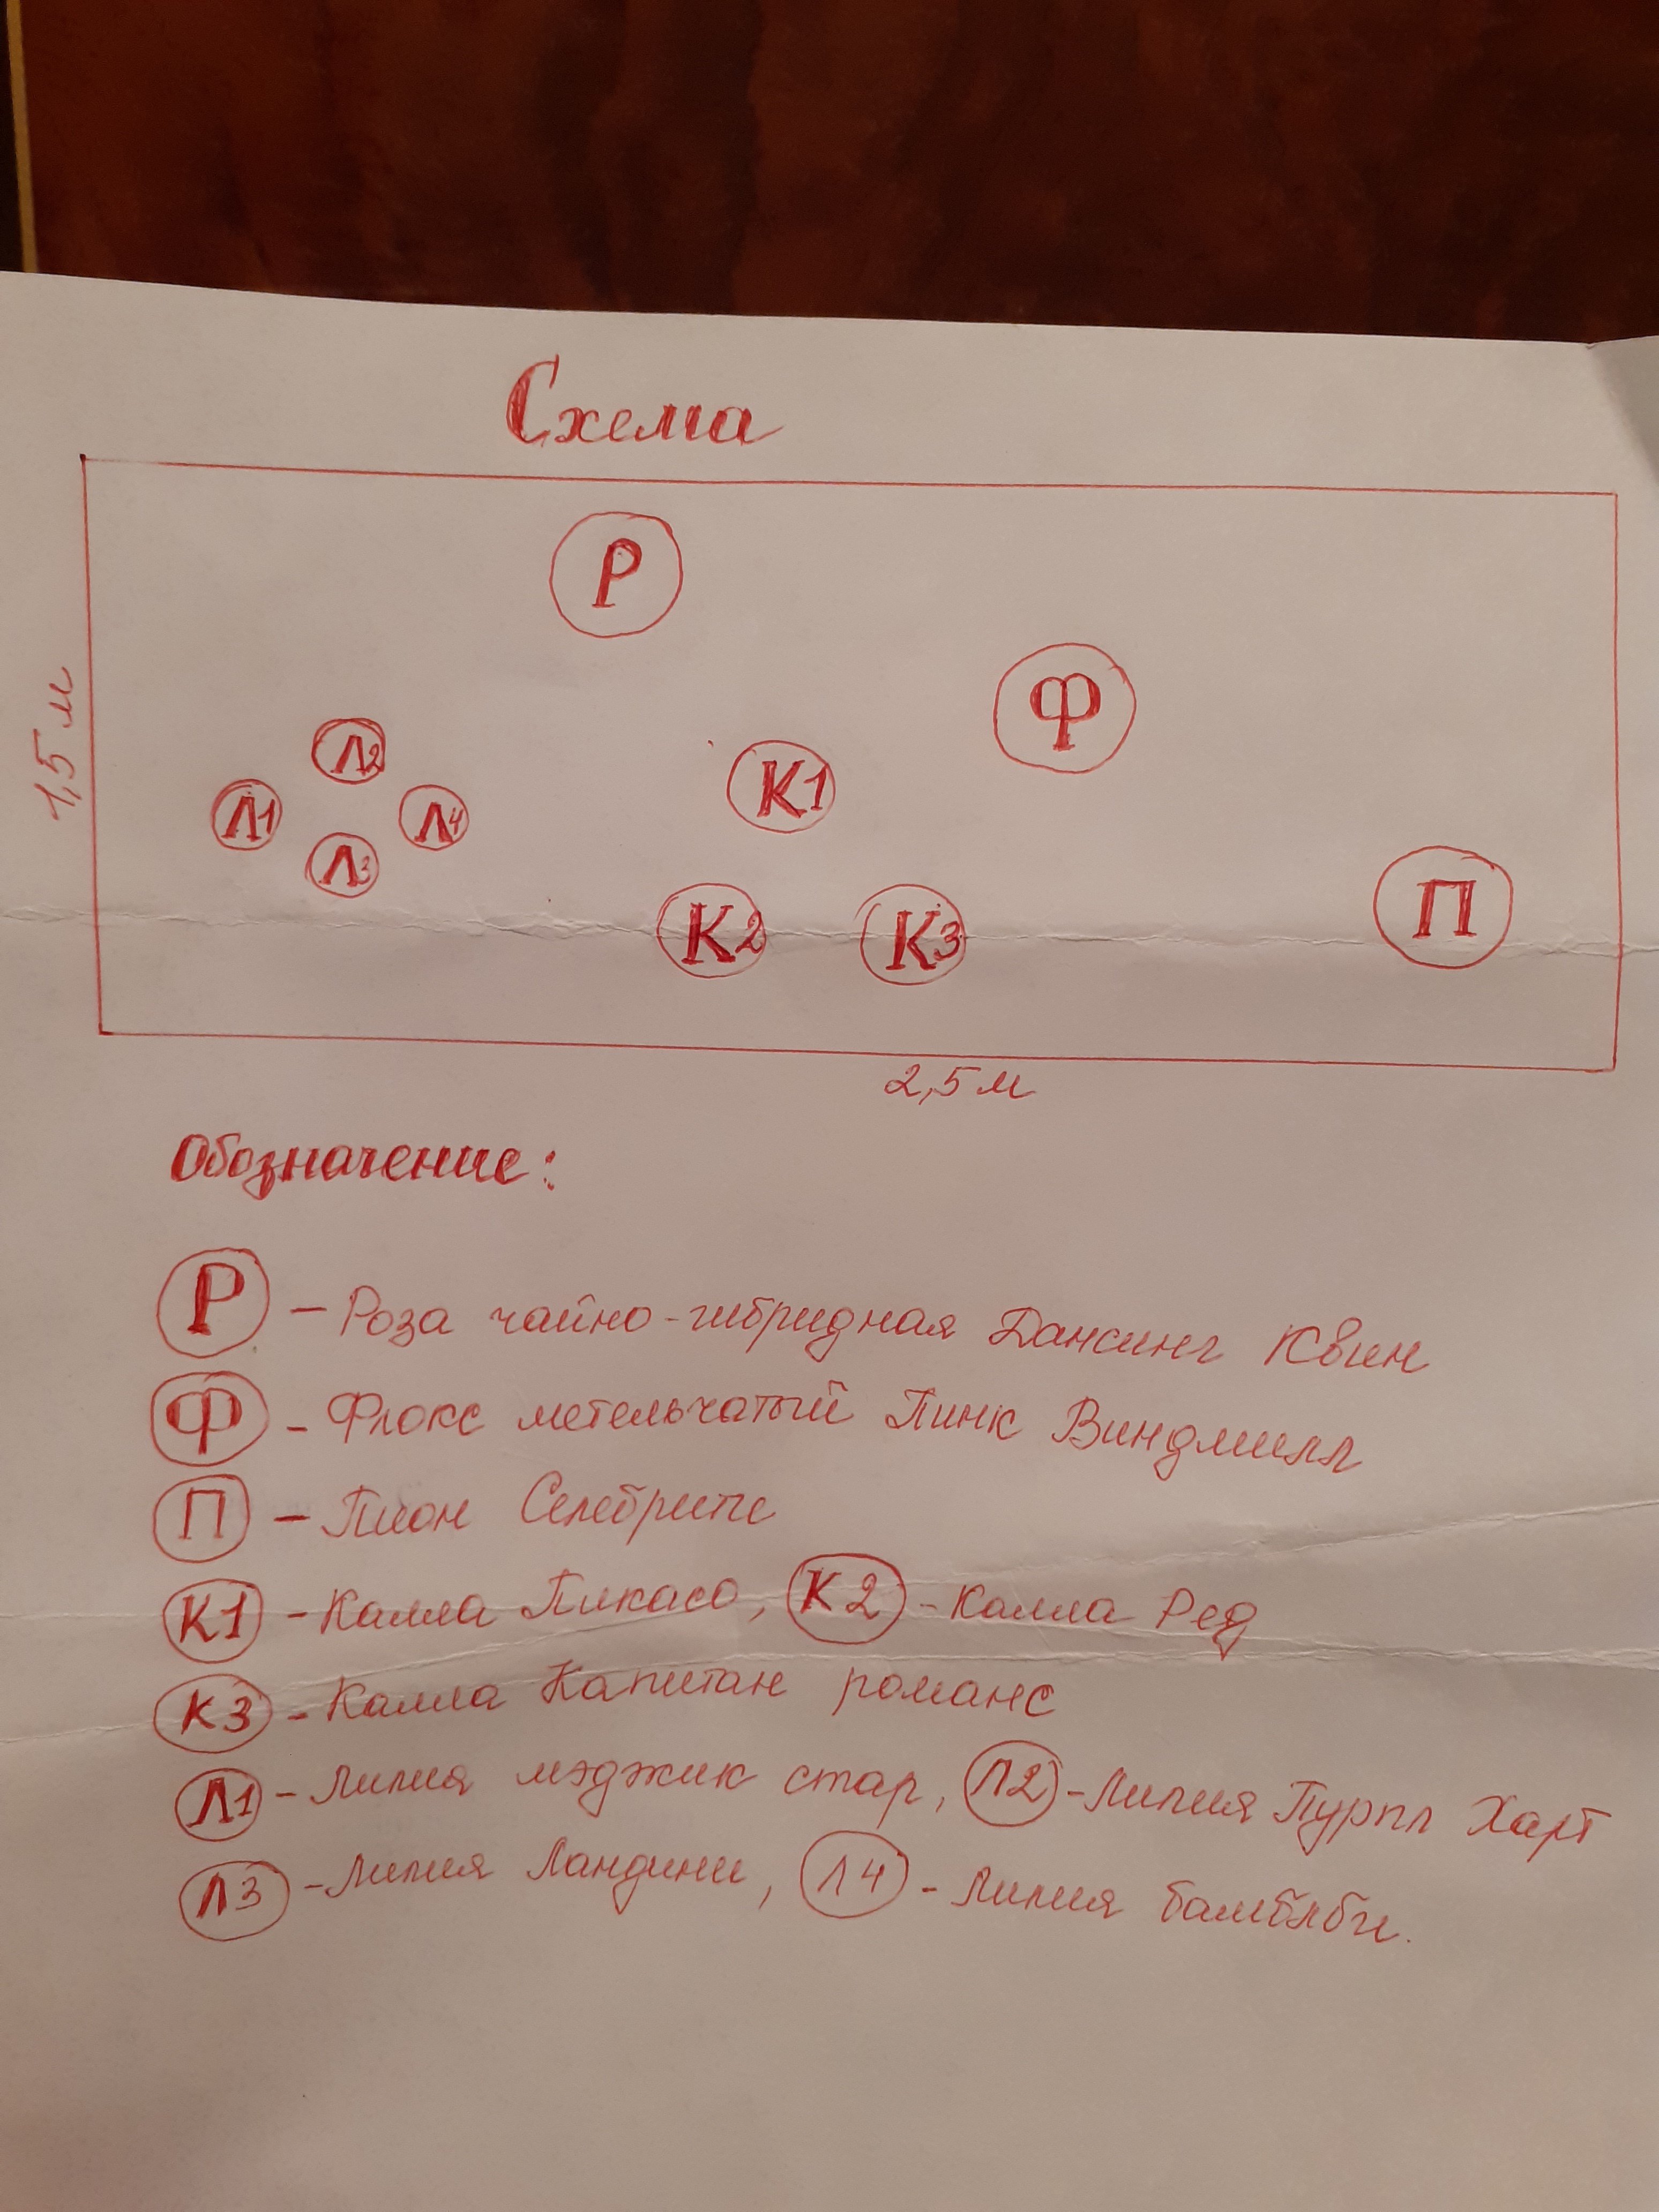 Схема
Р
Ф
1,5 м
Л2
Л1
Л4
Л3
К1
К2
К3
П
2,5 м
Обозначение:
Р - Роза чайно-гибридная Дансинг Квин
Ф - Флокс метельчатый Пинк Виндмилл
П - Пион Селебрити
К1 - Калла Пикасо, К2 - Калла Ред
К3 - Калла Капитан романс
Л1 - Лилия мэджик стар, Л2 - Лилия Пурпл Харт
Л3 - Лилия Ландини, Л4 - Лилия бамблби.